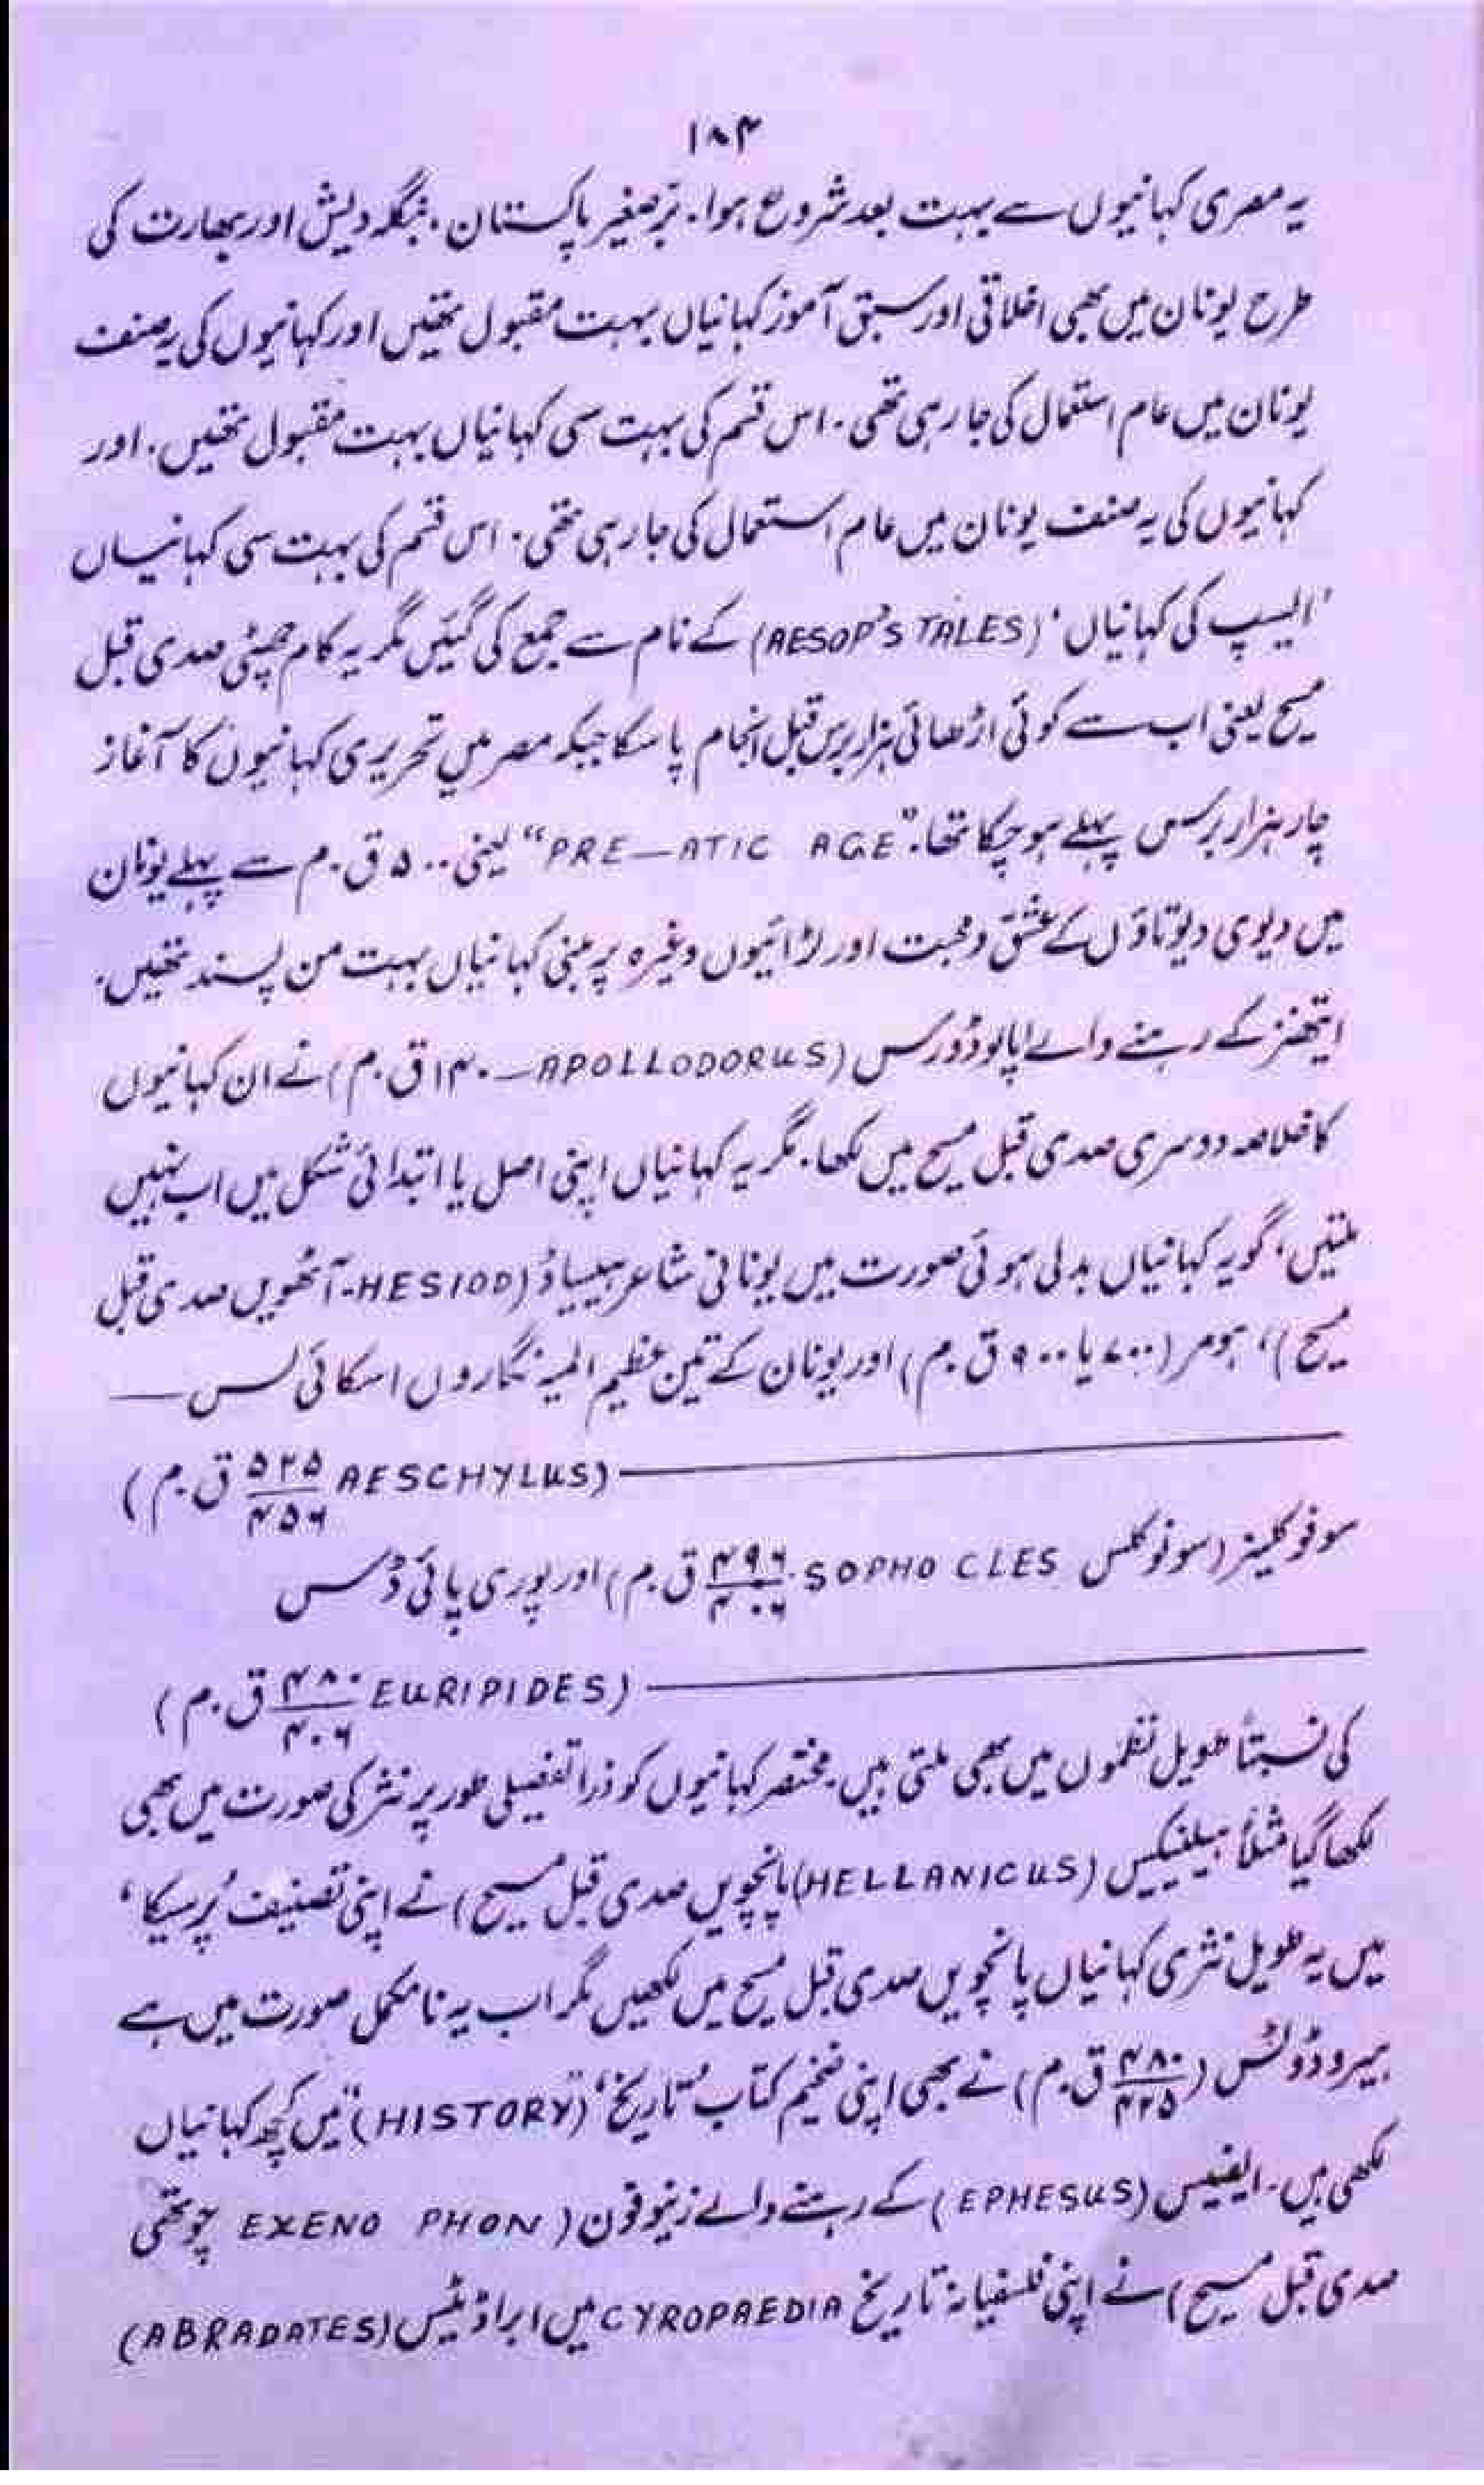 ۱۸۴
یہ مصری کہانیوں سے بہت بعد شروع ہوا۔ برّصغیر پاکستان، بنگلہ دیش اور بھارت کی
طرح یونان میں بھی اخلاقی اور سبق آموز کہانیاں بہت مقبول تھیں اور کہانیوں کی یہ صنف
یونان میں عام استعمال کی جا رہی تھی۔ اس قسم کی بہت سی کہانیاں بہت مقبول تھیں۔ اور
کہانیوں کی یہ صنف یونان میں عام استعمال کی جا رہی تھی۔ اس قسم کی بہت سی کہانیاں
'ایسپ کی کہانیاں' (AESOP'S TALES) کے نام سے جمع کی گئیں مگر یہ کام چھٹی صدی قبل
مسیح یعنی اب سے کوئی اڑھائی ہزار برس قبل انجام پا سکا جبکہ مصر میں تحریری کہانیوں کا آغاز
چار ہزار برس پہلے ہو چکا تھا۔ "PRE—ATIC AGE" یعنی ۵۰۰ ق۔م سے پہلے یونان
میں دیوی دیوتاؤں کے عشق و محبت اور لڑائیوں وغیرہ پر مبنی کہانیاں بہت من پسند تھیں۔
ایتھنز کے رہنے والے اپالوڈورس (APOLLODORUS—۱۴۰ ق۔م) نے ان کہانیوں
کا خلاصہ دوسری صدی قبل مسیح میں لکھا۔ مگر یہ کہانیاں اپنی اصل یا ابتدائی شکل میں اب نہیں
ملتیں، گو یہ کہانیاں بدلی ہوئی صورت میں یونانی شاعر ہیسیاڈ (HESIOD-آٹھویں صدی قبل
مسیح)، ہومر (۷۰۰ یا ۹۰۰ ق۔م) اور یونان کے تین عظیم المیہ نگاروں اسکائی لس —
——— (AESCHYLUS ۵۲۵/۴۵۶ ق۔م)
سوفوکلیز (سوفوکلس SOPHO CLES ۴۹۶/۴۰۶ ق۔م) اور یوری پائی ڈس
——— (EURIPIDES ۴۸۰/۴۰۶ ق۔م)
کی نسبتاً طویل نظموں میں بھی ملتی ہیں۔ مختصر کہانیوں کو ذرا تفصیلی طور پر نثر کی صورت میں بھی
لکھا گیا مثلاً ہیلنیکیس (HELLANICUS) پانچویں صدی قبل مسیح) نے اپنی تصنیف 'پرسیکا'
میں یہ طویل نثری کہانیاں پانچویں صدی قبل مسیح میں لکھیں مگر اب یہ نامکمل صورت میں ہے
ہیروڈوٹس (۴۸۰/۴۲۵ ق۔م) نے بھی اپنی ضخیم کتاب 'تاریخ' (HISTORY") میں کچھ کہانیاں
لکھی ہیں۔ ایفیسس (EPHESUS) کے رہنے والے زینوفون (EXENO PHON چوتھی
صدی قبل مسیح) نے اپنی فلسفیانہ تاریخ CYROPAEDIA میں ابراڈیٹس (ABRADATES)